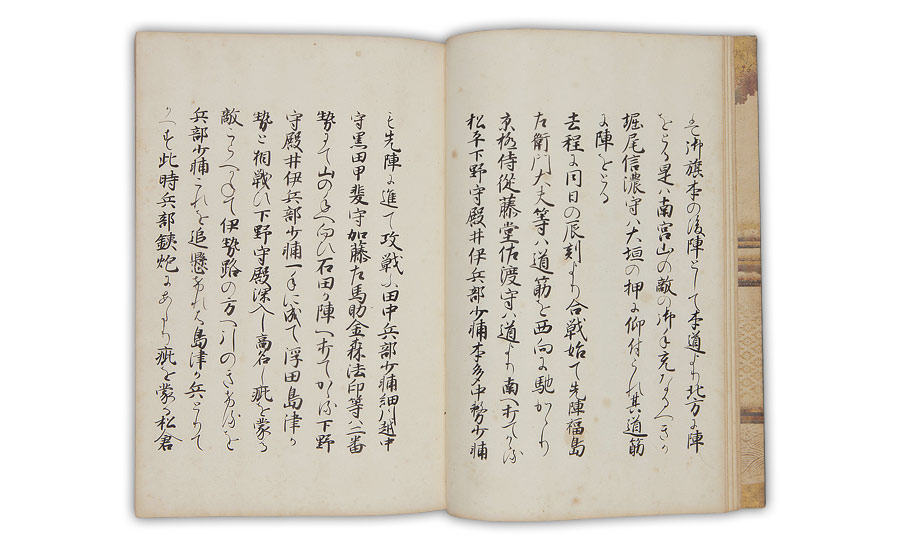 は御旗本の後陣として本道より北方に陣
をとる是ハ南宮山の敵の御手充なるへきか
堀尾信濃守ハ大垣の押に仰付られ其道筋
に陣をとる
去程に同日の辰刻より合戦始て先陣福島
左衛門大夫等ハ道筋を西向に馳かゝり
京極侍従藤堂佐渡守ハ道より南へ打てかゝる
松平下野守殿井伊兵部少輔本多中務少輔
も先陣に進て攻戦ふ田中兵部少輔細川越中
守黒田甲斐守加藤左馬助金森法印等ハ二番
勢にて山の手へ向ひ石田か陣へ打てかゝる下野
守殿井伊兵部少輔一手に成て浮田島津か
勢と相戦ひ下野守殿深入し高名し疵を蒙る
敵こらへかねて伊勢路の方へ引のきけるを
兵部少輔これを追懸られ島津か兵とりて
かへす此時兵部鉄炮にあたり疵を蒙る松倉